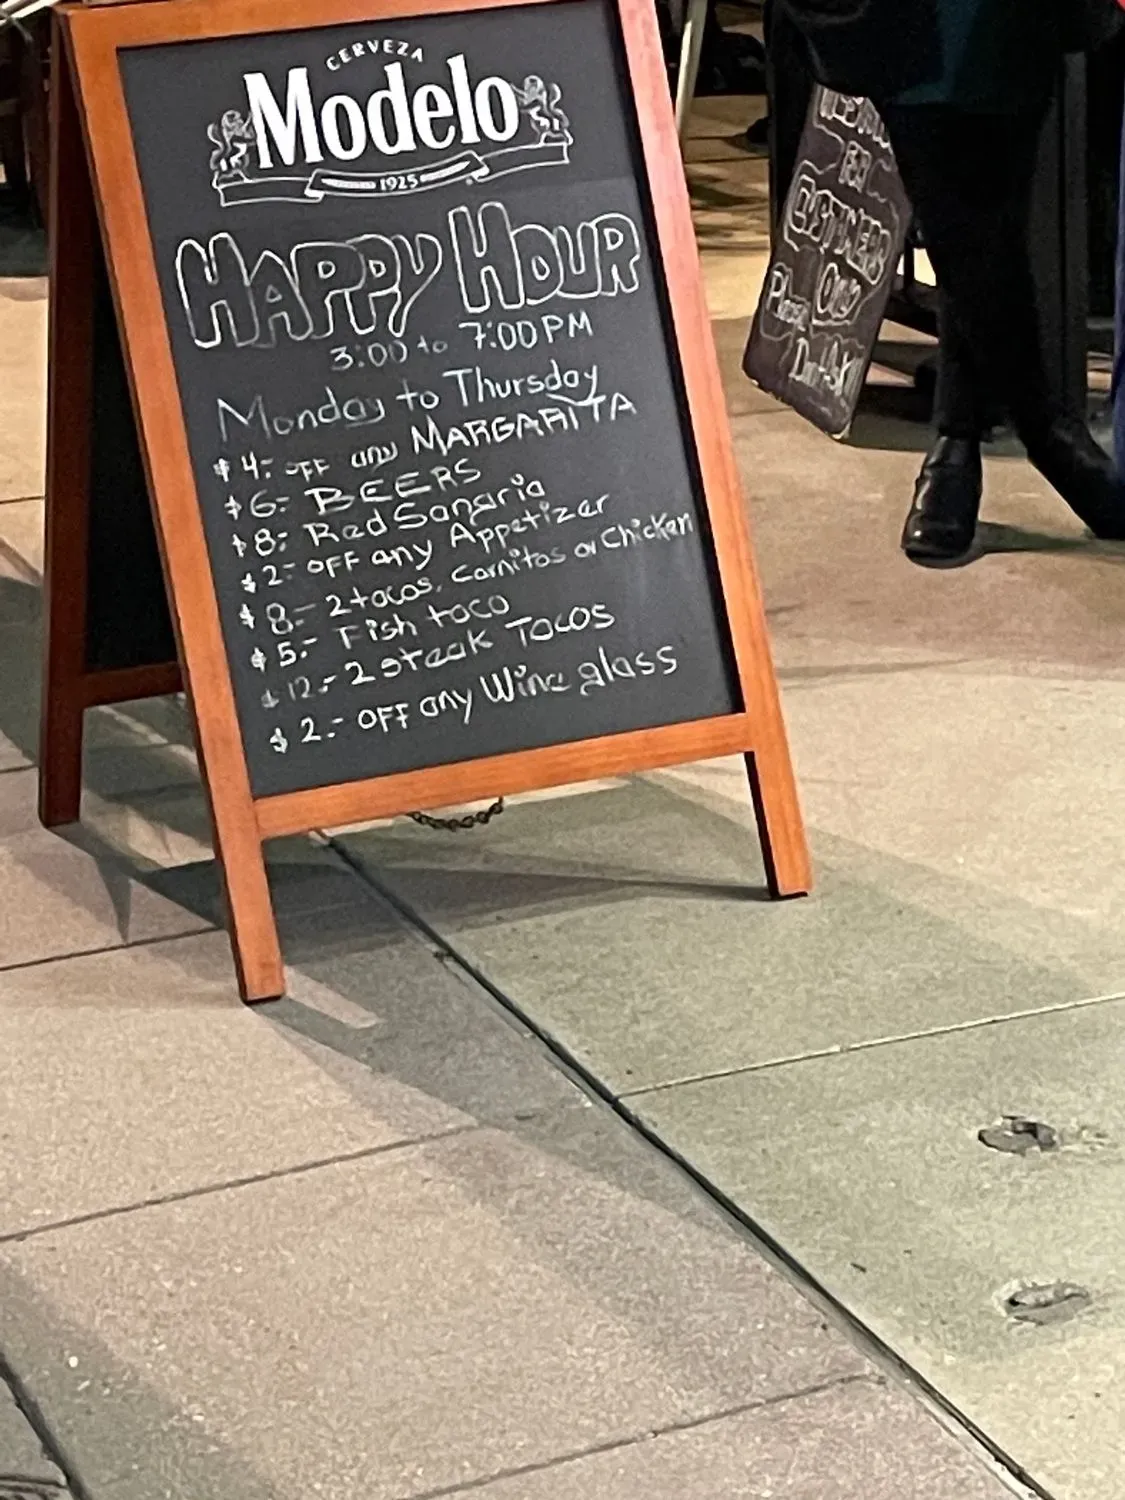 CERVEZA
Modelo
1925
HAPPY HOUR
3:00 to 7:00 PM
Monday to Thursday
$4.- OFF any MARGARITA
$6.- BEERS
$8.- Red Sangria
$2.- OFF any Appetizer
$8.- 2 tacos, Carnitas or Chicken
$5.- Fish taco
$12.- 2 steak Tacos
$2.- OFF any Wine glass
FOR
CUSTOMERS
ONLY
Please
Don't Ask